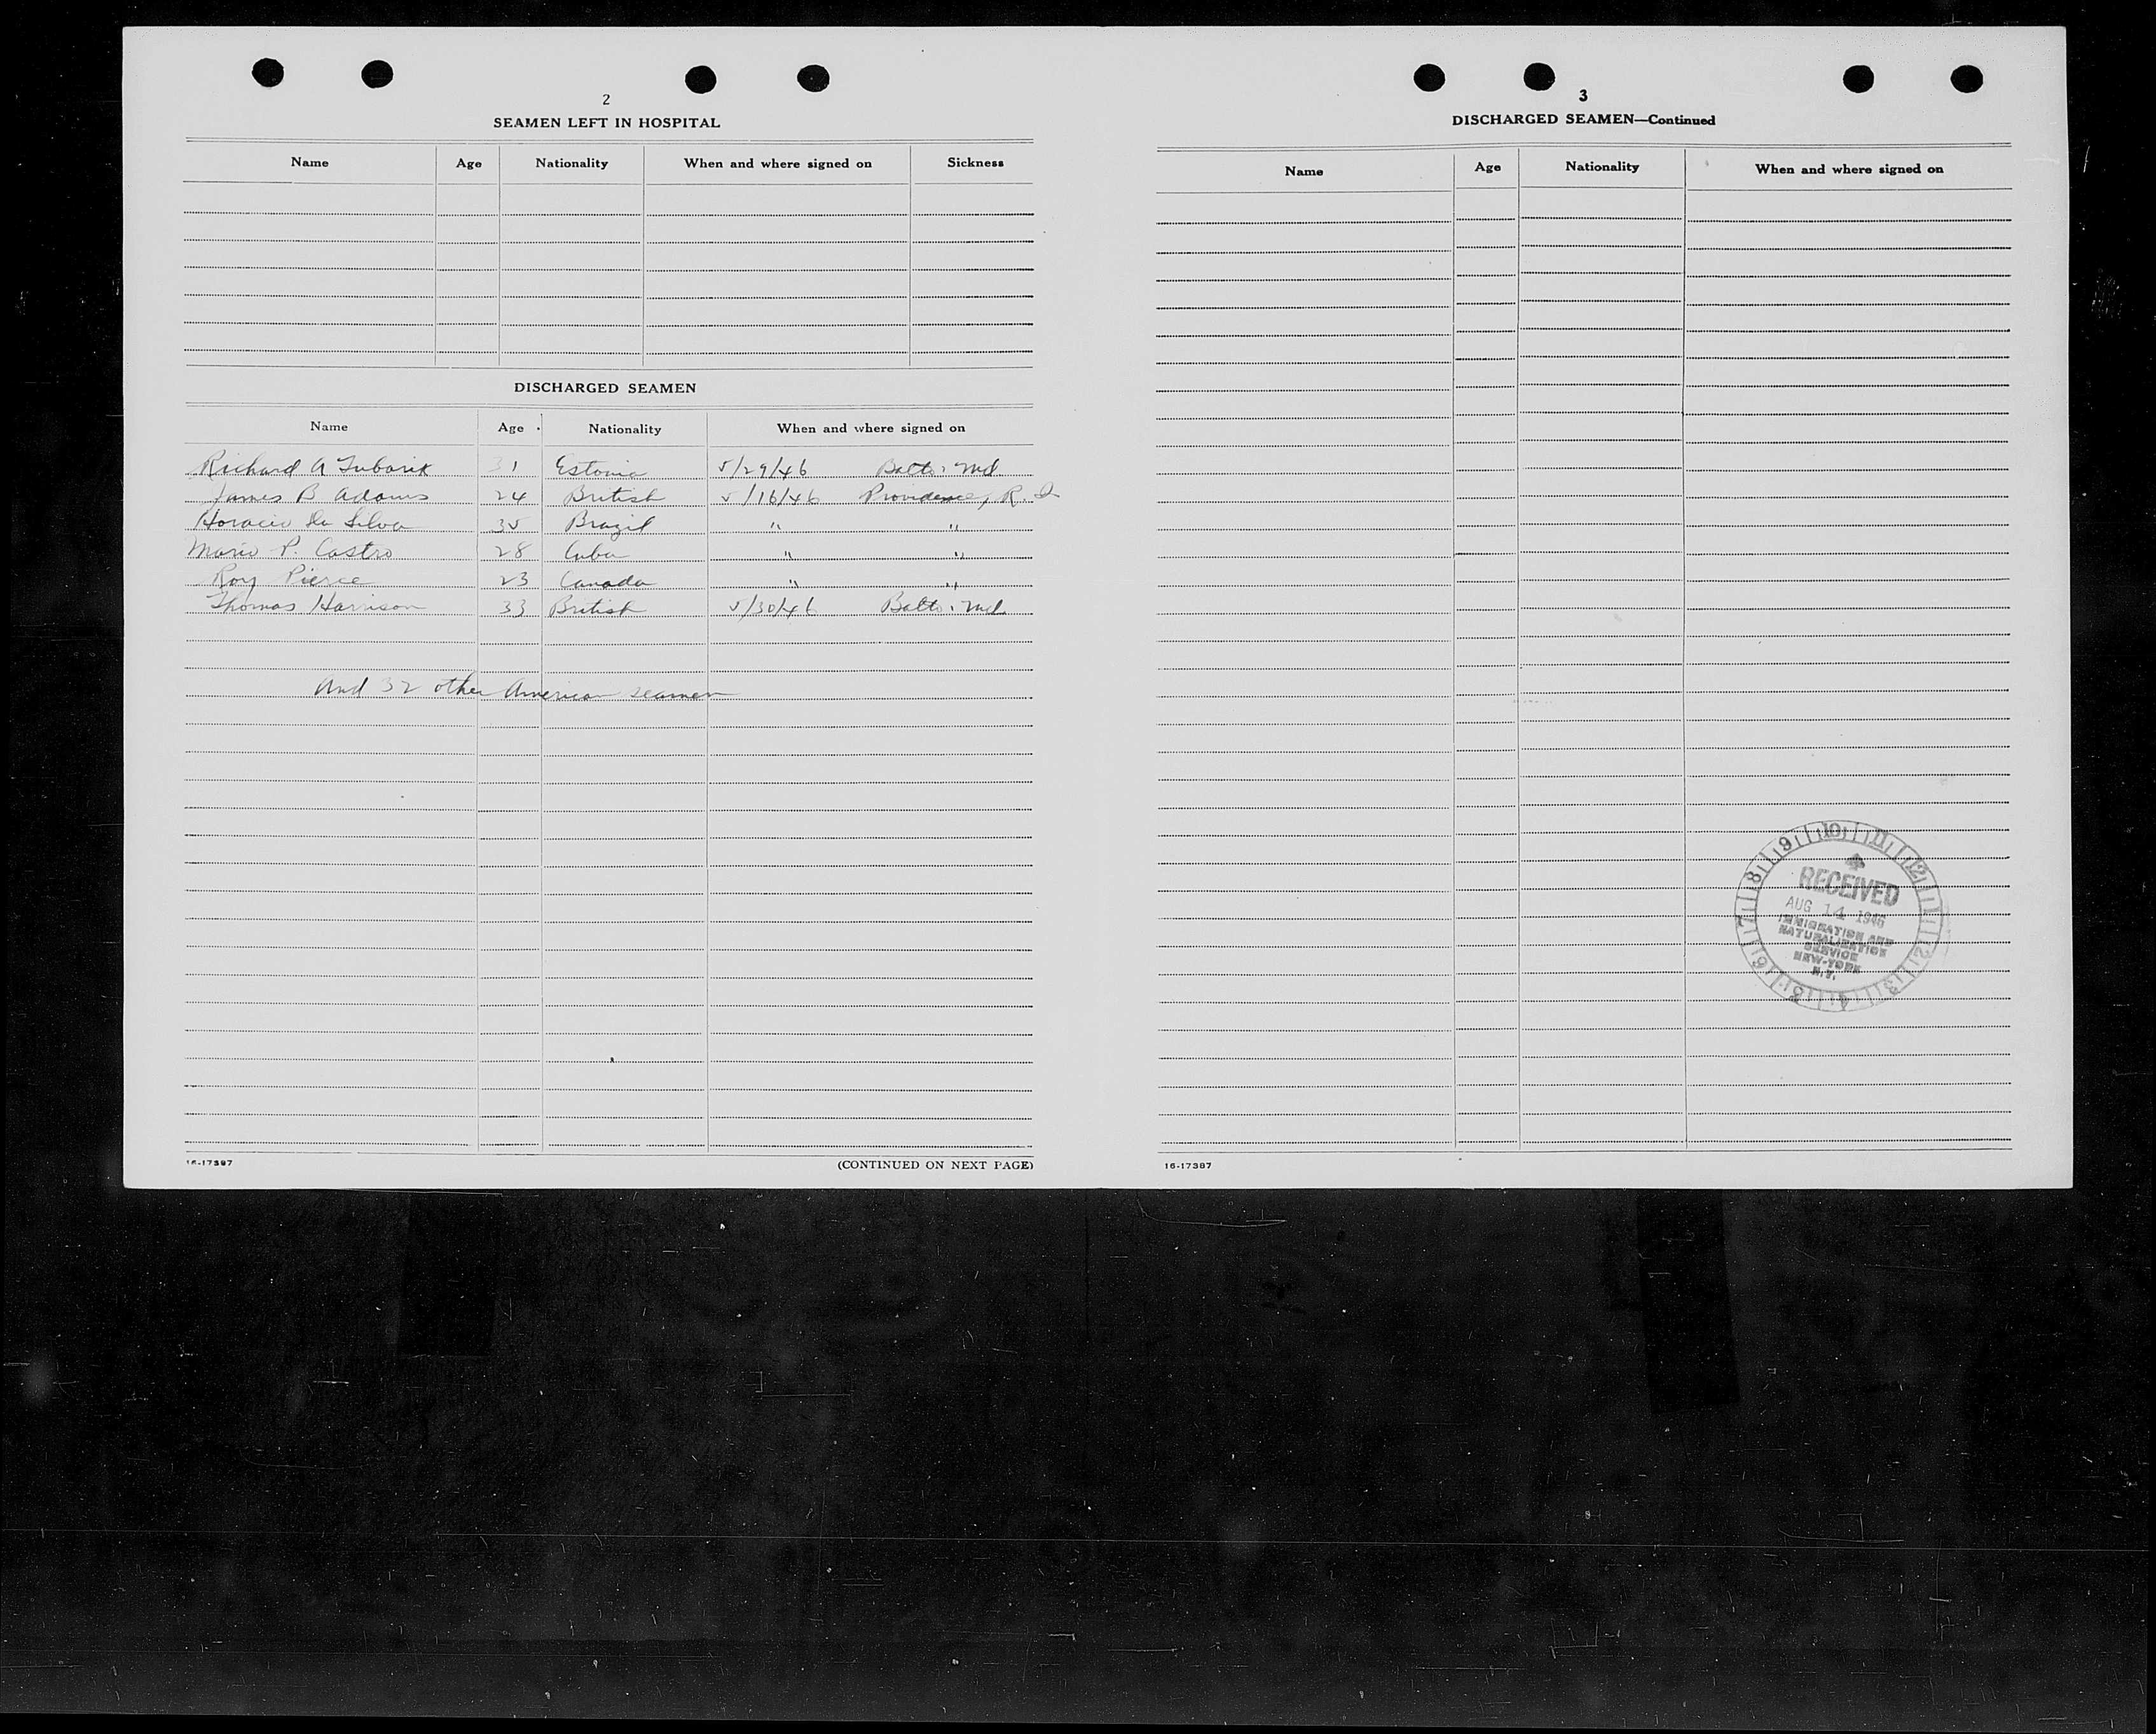 2
SEAMEN LEFT IN HOSPITAL
Name Age Nationality When and where signed on Sickness
DISCHARGED SEAMEN
Name Age Nationality When and where signed on
Richard A 31 Estonia 5/29/46 Balto. Md.
James B Adams 24 British 5/16/46 Providence, R. I.
Horacio Da Silva 35 Brazil " "
Mario P. Castro 28 Cuba " "
Roy Pierce 23 Canada " "
Thomas Harrison 33 British 5/30/46 Balto. Md
And 32 other American seamen
16-17387
(CONTINUED ON NEXT PAGE)
3
DISCHARGED SEAMEN—Continued
Name Age Nationality When and where signed on
RECEIVED
AUG 14 1946
IMMIGRATION AND
NATURALIZATION
SERVICE
NEW-YORK
N.Y.
16-17387